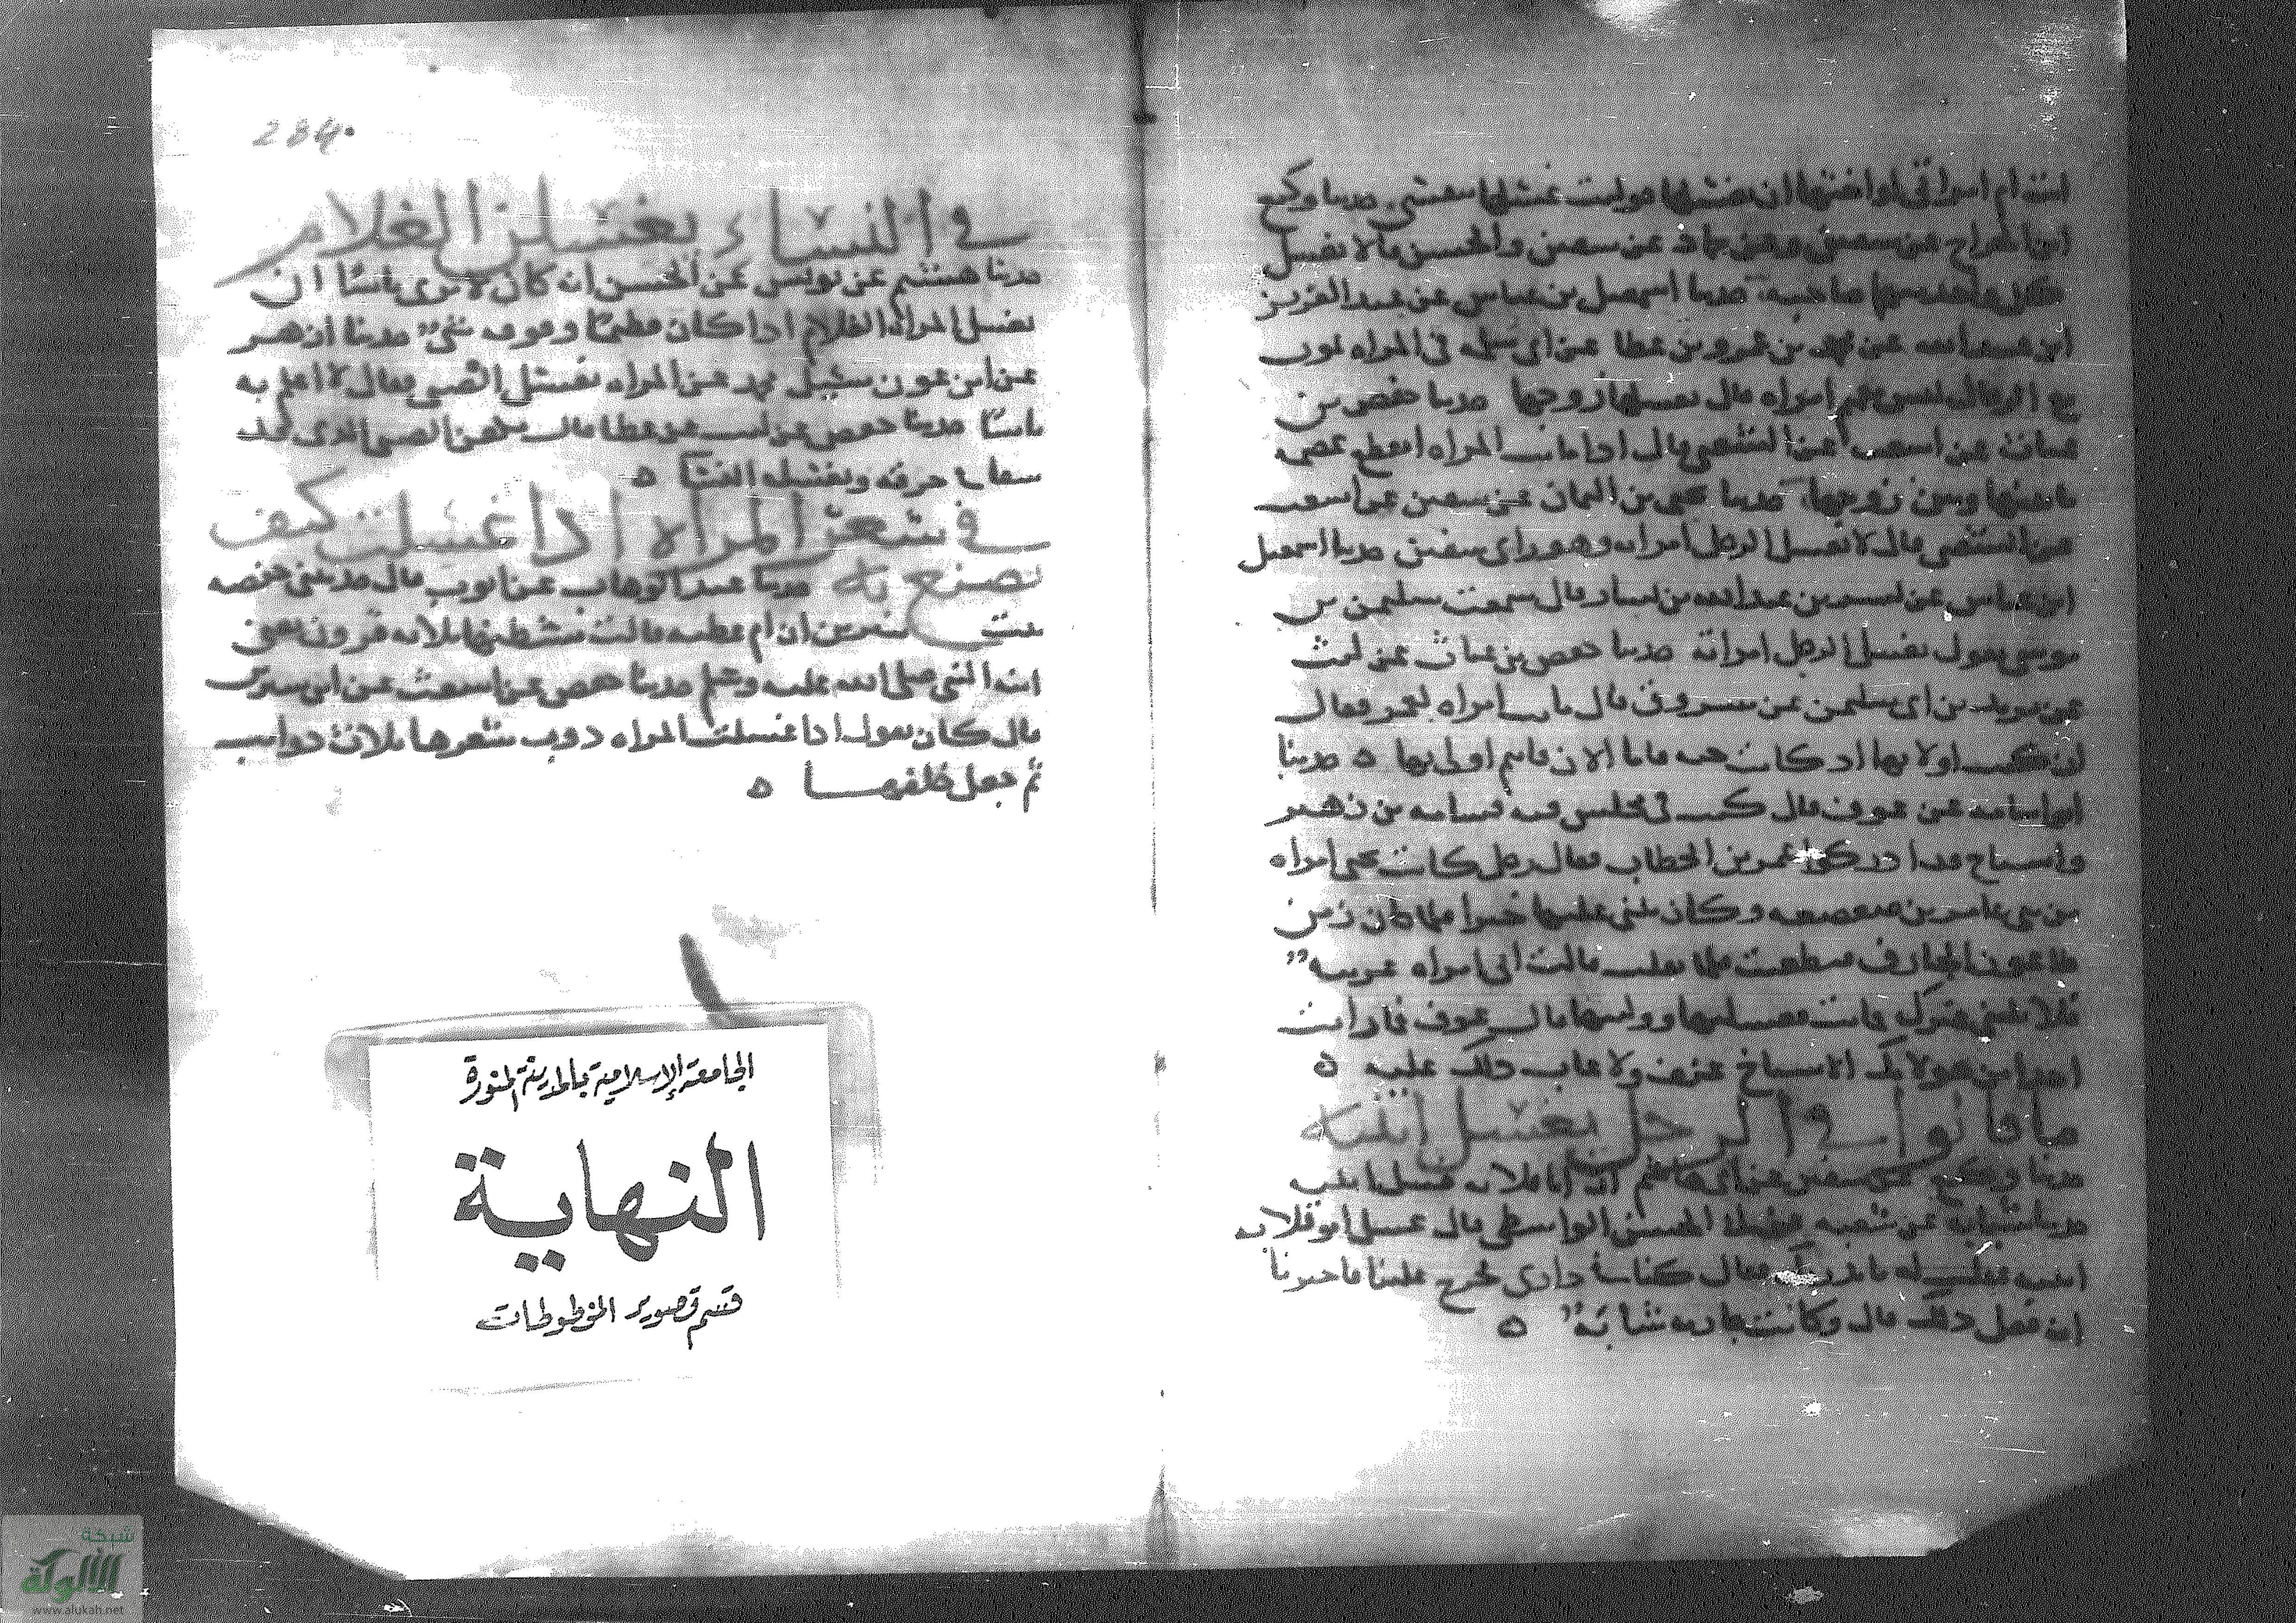 ابن الجراح عن سفين عن عن سفين والحسن قالا يغسل
كل واحد منهما صاحبه حدثنا اسمعيل بن عياش عن عبد العزيز
ابن عبيد الله عن محمد بن عمرو بن عطا عن في المراه تموت
مع الرجال ليس معهم امراه قال يغسلها زوجها حدثنا حفص بن
غياث عن اشعث عن الشعبي قال اذا ماتت المراه انقطع عصمه
ما بينها وبين زوجها حدثنا بن اليمان عن سفين عن اشعث
عن الشعبي قال لا يغسل الرجل امراته وهو راي سفين حدثنا اسمعيل
ابن عياش عن بن عبد الله بن يسار قال سمعت سليمن بن
موسى يقول يغسل الرجل امراته حدثنا حفص بن غياث عن ليث
عن يزيد بن ابي سليمن عن مسروق قال ماتت امراه لعمر فقال
انا كنت اولى بها اذ كانت حيه فاما الان فانتم اولى بها ه حدثنا
ابو اسامه عن عوف قال كنت في مجلس فيه قسامه بن زهير
واشياخ قد ادركوا عمر بن الخطاب فقال رجل كانت تحتي امراه
من بني عامر بن صعصعه وكان يثني عليها خيرا فلما كان زمن
طاعون الجارف طعنت فلما ثقلت قالت اني امراه غريبه
فلا يليني غيرك فماتت فغسلتها ووليتها قال عوف فما رايت
احدا من هولايك الاشياخ عنف ولا عاب ذلك عليه ه
ما قالوا في الرجل يغسل ابنته
حدثنا وكيع عن سفين عن ابي هاشم ان ابا قلابه غسل ابنته
حدثنا شبابه عن شعبه الحسن الواسطي قال غسل ابو قلابه
ابنته فقلت له ما يدريك فقال كنا في داره فخرج علينا فاخبرنا
انه فعل ذلك قال وكانت جاريه شابه ه
284
في النساء يغسلن الغلام
حدثنا هشيم عن يونس عن الحسن انه كان لا يرى باسا ان
تغسل المراه الغلام اذا كان فطيما وفوقه شيء حدثنا ازهر
عن ابن عون سئل محمد عن المراه تغسل الصبي فقال لا اعلم به
باسا حدثنا حفص عن ليث عن عطا قال الصبي الذي قد
سعا في خرقه ويغسله النسا ه
في شعر المراه اذا غسلت كيف
يصنع به حدثنا عبد الوهاب عن ايوب قال حدثتني حفصه
بنت سيرين ان ام عطيه قالت مشطناها ثلاثه قرون تعني
ابنه النبي صلى الله عليه وسلم حدثنا حفص عن اشعث عن ابن سيرين
قال كان يقول اذا غسلت المراه ذوب شعرها ثلاث ذوايب
ثم جعل خلفها ه
الجامعة الإسلامية بالمدينة المنورة
النهاية
قسم تصوير المخطوطات
شبكة
الألوكة
www.alukah.net